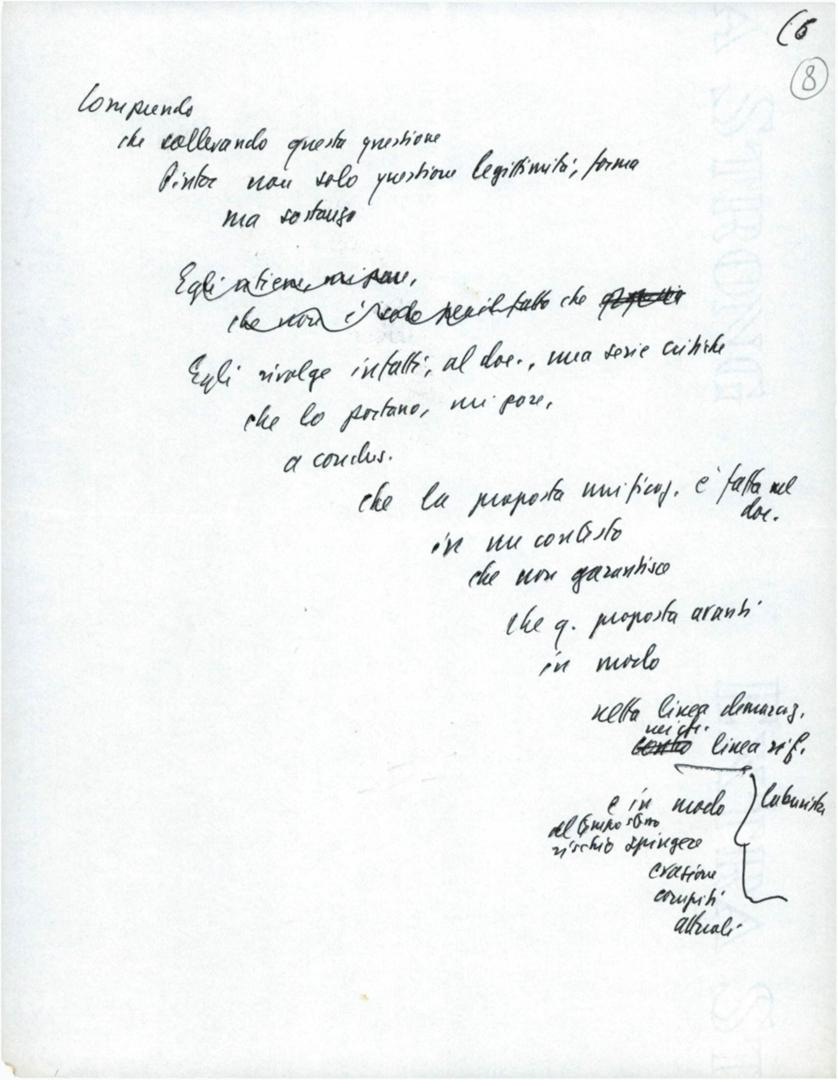 (5
8
Comprendo
che sollevando questa questione
Pintor non solo questione legittimità, forma
ma sostanza
Egli ritiene, mi pare,
che non è solo per il fatto che
Egli rivolge infatti, al doc., una serie critiche
che lo portano, mi pare,
a conclus.
che la proposta unificaz. è fatta nel
doc.
in un contesto
che non garantisce
che q. proposta avanti
in modo
netta linea demarcaz.
linea rif.
e in modo
laburista
al tempo stesso
rischio spingere
evasione
compiti
attuali